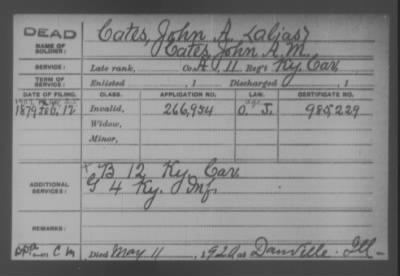 DEAD
NAME OF SOLDIER:
Cates, John A. (alias)
Cates, John A. M.
SERVICE:
Late rank, Co. A, 11 Reg't Ky. Cav.
TERM OF SERVICE:
Enlisted , 1 Discharged , 1
DATE OF FILING. CLASS. APPLICATION NO. LAW. CERTIFICATE NO.
1879 Feb. 12 Invalid, 266,954 O. J. 985,229
Widow,
Minor,
ADDITIONAL SERVICES:
B 12 Ky. Cav.
G 4 Ky. Inf.
REMARKS:
Died May 11, 1920 at Danville Ill.